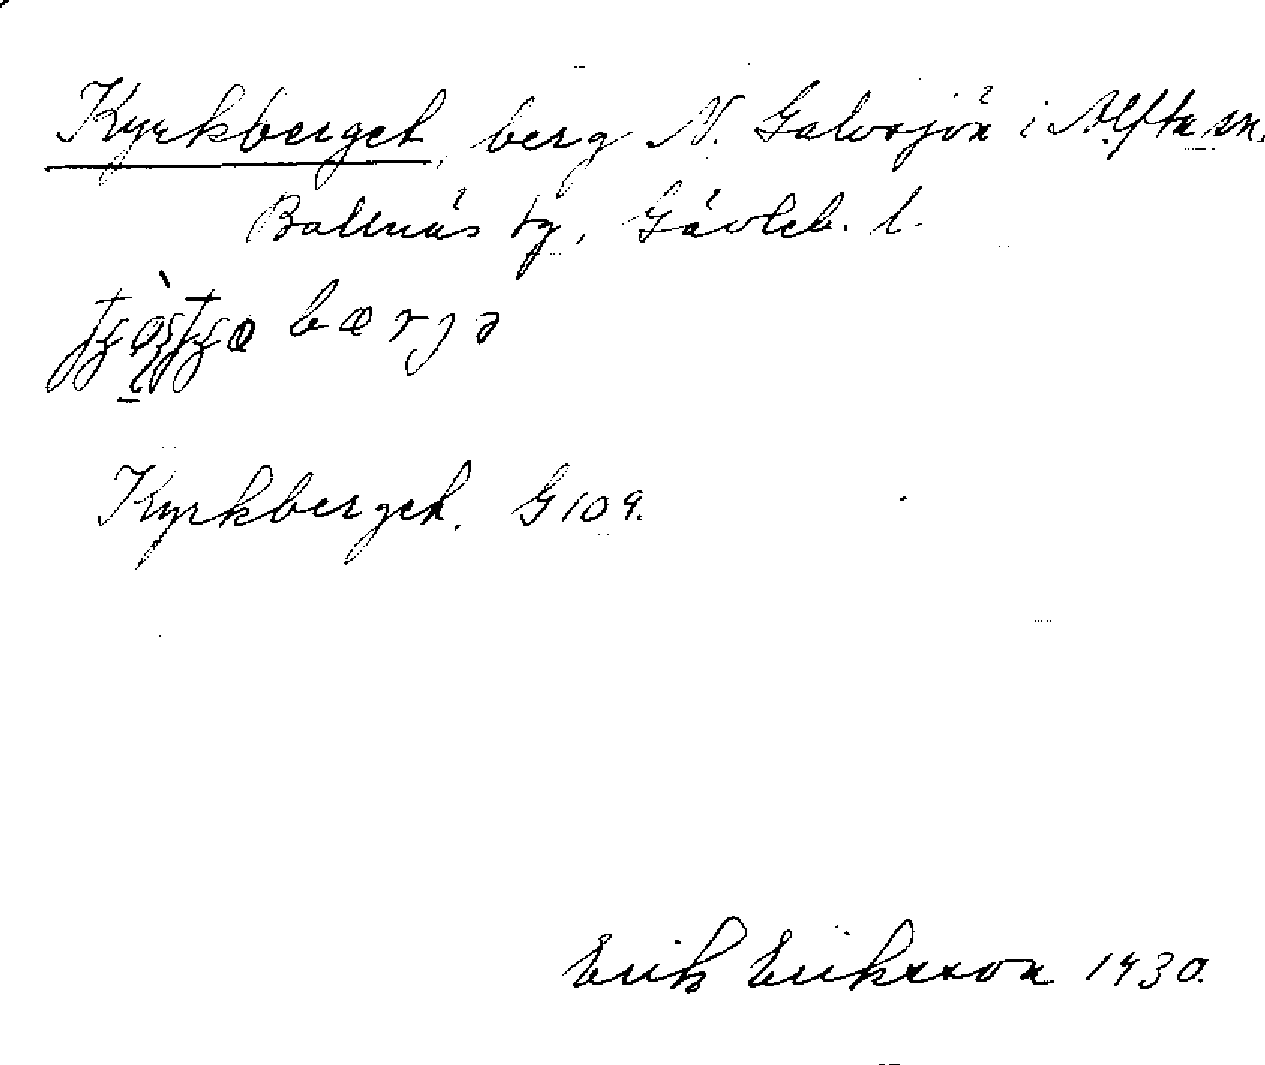 Kyrkberget, berg N. Galvsjön i Alfta sn.
Bollnäs tg, Gävleb. l.
bærjə
Kyrkberget. G 109.
Erik Eriksson 1930.